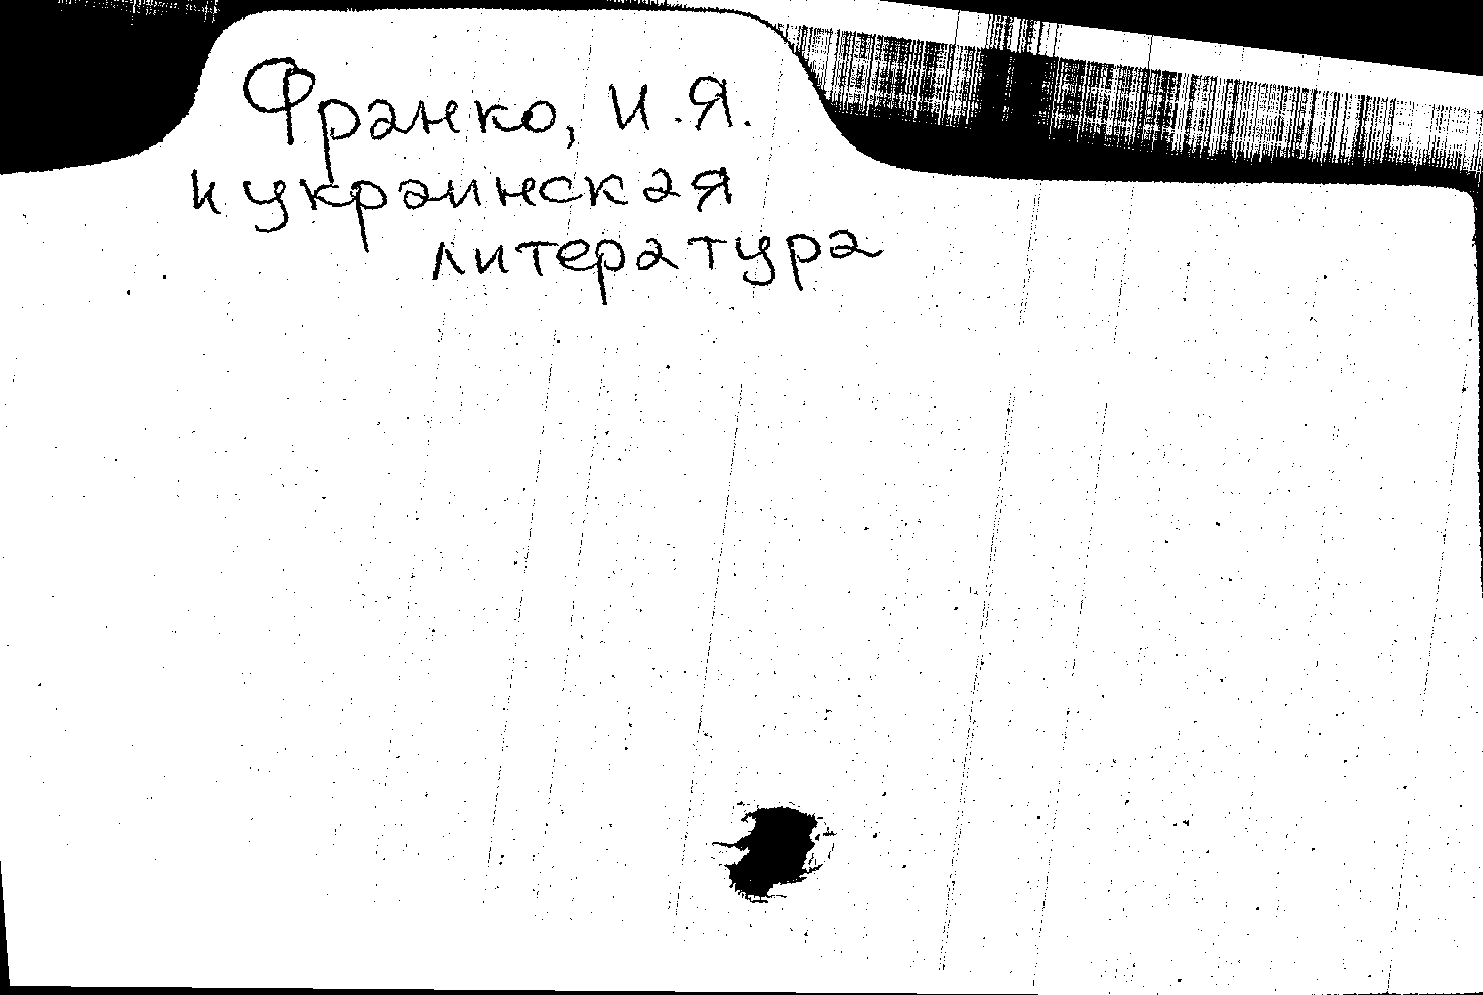 Франко, И.Я.
и украинская
литература